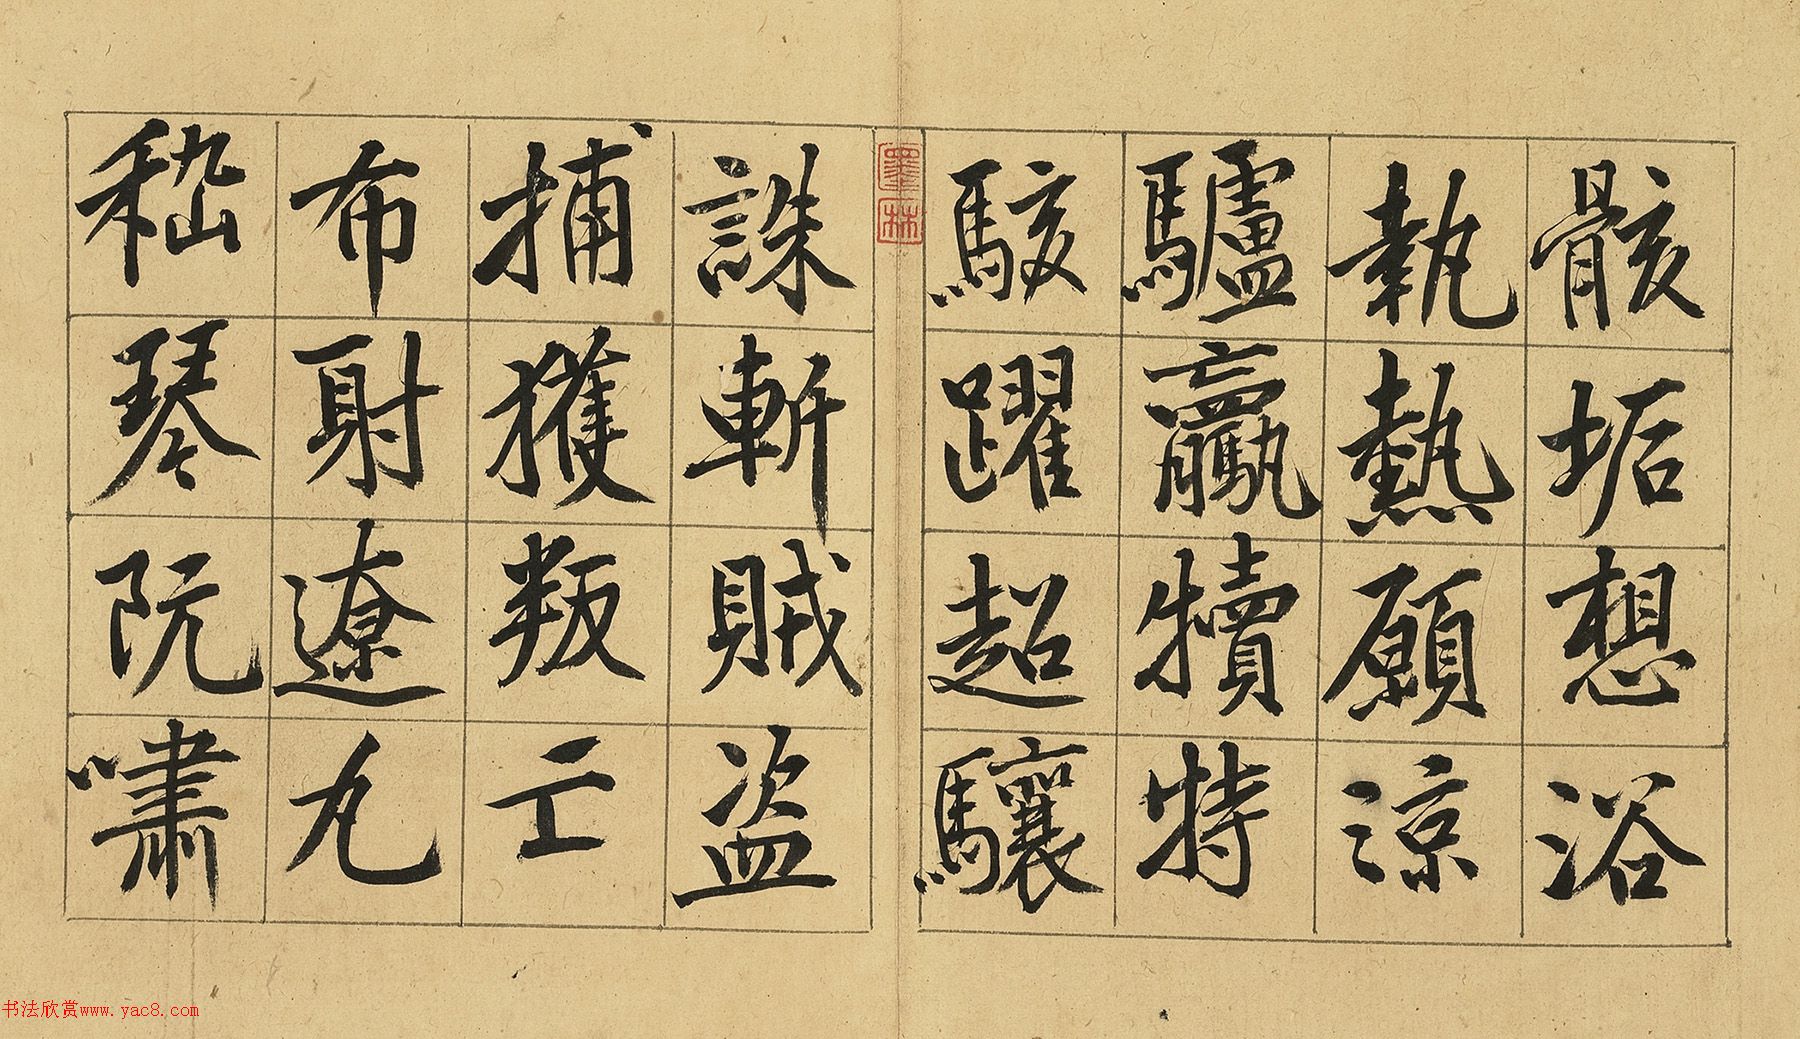 骸垢想浴
執熱願涼
驢驘犢特
駭躍超驤
誅斬賊盗
捕獲叛亡
布射遼丸
嵇琴阮嘯
墨林
书法欣赏www.yac8.com